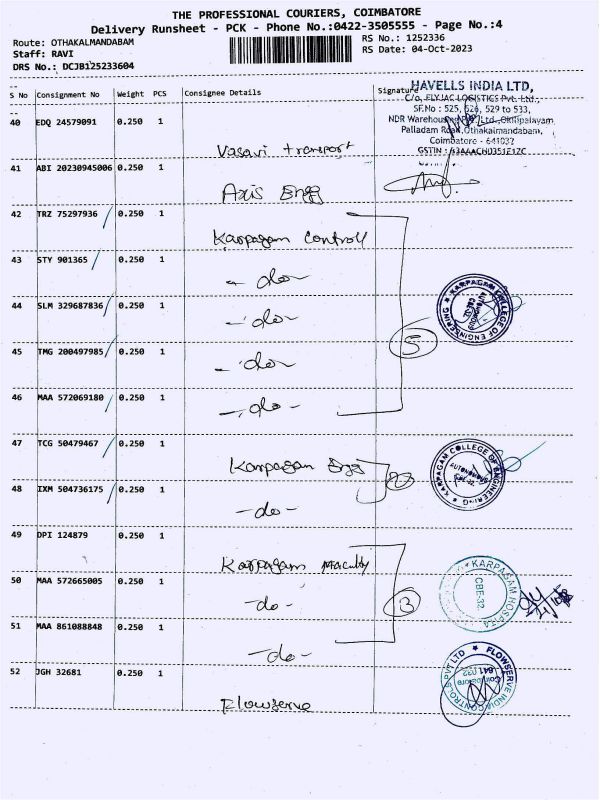 THE PROFESSIONAL COURIERS, COIMBATORE
Delivery Runsheet - PCK - Phone No.:0422-3505555 - Page No.:4
Route: OTHAKALMANDABAM
RS No.: 1252336
Staff: RAVI
RS Date: 04-Oct-2023
DRS No.: DCJB125233604
S No Consignment No Weight PCS Consignee Details Signature
HAVELLS INDIA LTD,
C/o. FLYJAC LOGISTICS Pvt. Ltd.,
SF.No : 525, 526, 529 to 533,
NDR Warehousing Pvt. Ltd., Okilipalayam,
Palladam Road, Othakalmandabam,
Coimbatore - 641032
40 EDQ 24579091 0.250 1
Vasavi transport
41 ABI 20230945006 0.250 1
Axis Engg
42 TRZ 75297936 0.250 1
Karpagam Controll
43 STY 901365 0.250 1
- do -
44 SLM 329687836 0.250 1
- do -
45 TMG 200497985 0.250 1
- do -
46 MAA 572069180 0.250 1
- do -
5
KARPAGAM COLLEGE OF ENGINEERING
AUTONOMOUS
CBE-32.
47 TCG 50479467 0.250 1
Karpagam Engg
48 IXM 504736175 0.250 1
- do -
KARPAGAM COLLEGE OF ENGINEERING
AUTONOMOUS
CBE-32.
49 DPI 124879 0.250 1
Karpagam Faculty
50 MAA 572665005 0.250 1
- do -
51 MAA 861088848 0.250 1
- do -
3
KARPAGAM HOSPITAL
CBE-32.
52 JGH 32681 0.250 1
Flowserve
FLOWSERVE INDIA CONTROLS PVT LTD
Coimbatore
641 032